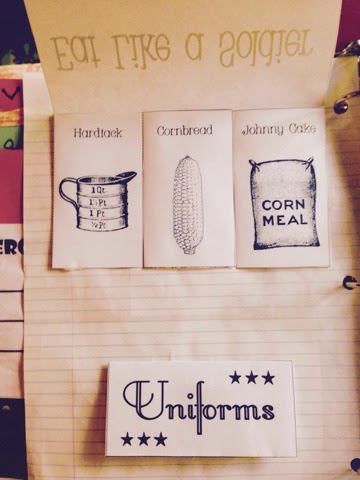 Eat Like a Soldier
Hardtack
Cornbread
Johnny Cake
1 Qt.
1½ Pt.
1 Pt.
½ Pt.
CORN
MEAL
Uniforms